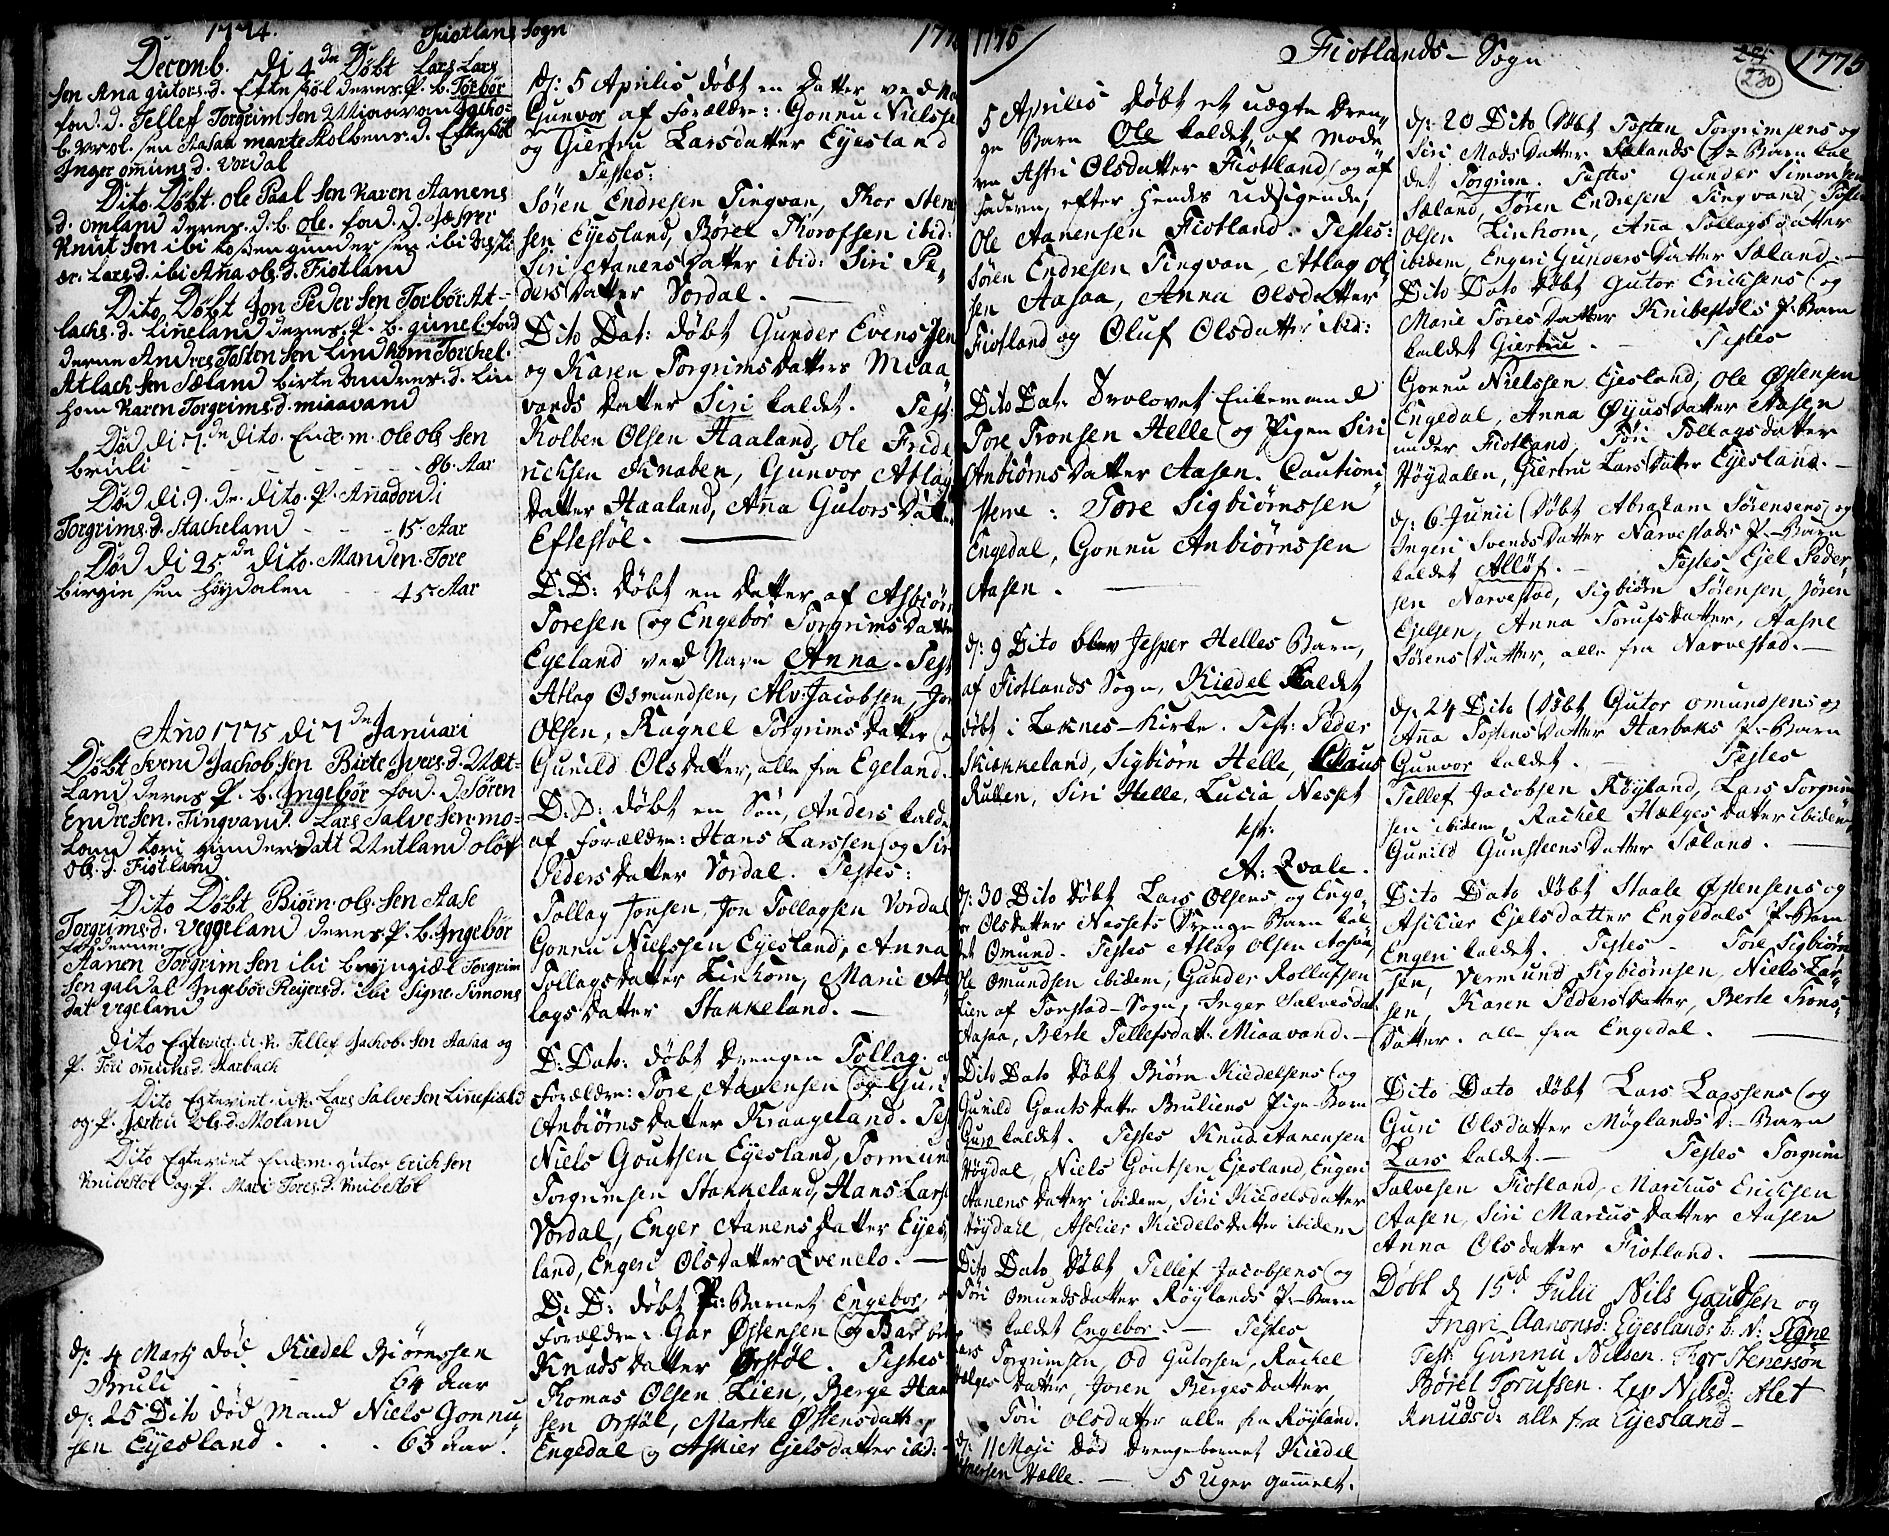 1774. Fiotland Sogn
Decemb. di 4de Døbt Lars Lars
sen Ana gutors.d. Eftestøl deres P. b. Torbør
fad.d. Tellef Torgrimsen Miaavan
b. sen Aasaa marte Kolbens.d. Eftestøl
Inger omuns.d. Vordal
Dito Døbt. Ole Paal Sen Karen Aanens
d. omland deres d. b. Ole. fad.d. Jesper
Knut Sen ibi gunder sen ibi
Lars.d. ibi Aña ols.d. Fiotland
Dito Døbt Jon Peder Sen Torbør At-
lachs.d. Liñeland deres. P. b. gunel fad
derne Andres Tosten Sen Lindhom Torchel
Atlack Sen Sæland birte Andres.d. Lin
hom Karen Torgrims.d. miaavand
Død di 7de dito. Enke.m. Ole Ols Sen
Bruli - - - - - 86. Aar
Død di 9. de. dito. P. Aña
Torgrims.d. Stacheland - - - 15 Aar
Død di 25de dito. Manden. Tore
birgin sen höydalen - - 45 Aar
Año 1775 di 7de Januari
Døbt Svend Jachob Sen Birte Ivers.d. Uæt-
land deres P. b. Ingebør fad.d. Sören
Endresen. Tingvand. Lars Salvesen mo-
land Tori gunders datt Uetland olöf
Ols.d. Fiotland
Dito Døbt Biörn ols. Sen Aase
Torgrims.d. Veggeland deres P. b. Ingebör
fadderne
Aanen Torgrim Sen ibi bryngiel Torgrim
Sen galdal Ingebör Reijers.d. ibi Signe Simons
dat vegeland
dito Egteviet u.k. Tellef Jachob. Sen Aasaa og
P. Töri omuns.d. Harbach
Dito Egteviet u.k. Lars Salve Sen Linefield
og P. Ols.d. Moland
Dito Egteviet Enkem. gutor Erich Sen
Knibestöl og P. Mari Tores.d. Knibestöl
d: 4 Marti død Kiedel Biörnssen
Bruli - - - 64 Aar
d: 25 Dito død Mand Niels Gonnu
sen Eyesland . . . 63 Aar.
d: 5 Aprilis døbt en Datter ved
Gunvor af Forældre: Gonnu Nielsse
og Giertru Larsdatter Eyesland
Testes:
Søren Endresen Tingvan, Thor Sten
sen Eyesland, Børel Thorofsen ibid:
Siri Aanensdatter ibid: Siri Pe,
dersdatter Vordal. —
Dito Dat: døbt Gunder Evensøn
og Karen Torgrimsdatters Miaa
vands datter Siri kaldet. Test:
Kolben Olsen Haaland, Ole Fride
richsen Knaben, Gunvor Atlag
datter Haaland, Aña Gutors datter
Eftestøl. —
D: D: døbt en datter af Asbiörn
Toresen og Engebor Torgrims datter
Egeland ved Navn Anna. Test
Atlag Osmundsen, Alv: Jacobsen, Jon
Olsen, Ragnel Torgrims datter
Gunild Ols datter, alle fra Egeland.
D: D: døbt en Søn, Anders kalde
af Forældre: Hans Larssen og Sir
Peders datter Vordal. Testes:
Tollag Jonsen, Jon Tollagsen Vordal
Gonnu Nielssen Eyesland, Anna
Tollags datter Linhom, Marie At
lags datter Stakkeland. —
D: Dato: døbt Drengen Tollag
Forældre: Tore Aanensen og Guri
Anbiörns datter Kraageland. Tes
Niels Goutsen Eyesland, Tormun
Torgrimsen Stakkeland, Hans Lars
Vordal, Enger Aanens datter Eyes,
land, Engeri Ols datter Qvenelo. —
D: D: døbt P: Barnet Engebor,
Forældre. Gar Østensen og Bar
Knuds datter Ørstöl. Testes
Thomas Olsen Lien, Berge Han
sen Orstöl, Marke Østensdatt:
Engedal og Askier Ejelsdatter ibid:
1775 Fiotlands - Sogn 230 1775
5 Aprilis døbt et uægte Dren,
ge Barn Ole kaldet, af Mode
ren Astri Olsdatter Fiotland, og af
Faderen, efter Hendes Udsigende,
Ole Aanensen Fiotland. Testes:
Søren Endresen Tingvan, Atlag Ol
sen Aasaa, Anna Olsdatter
Fiotland og Oluf Olsdatter ibid:
Dito Dat: Trolovet Enkemand
Tore Tronsen Helle og Pigen Siri
Anbiörns datter Aasen. Cautioni
sterne: Tore Sigbiörnssen
Engedal, Gonnu Anbiörnssen
Aasen. —
d: 9 Dito blev Jesper Helles Barn,
af Fiotlands Sogn, Kiedel kaldet
døbt i Leknes-Kirke. Test: Peder
Skiekkeland, Sigbiörn Helle, Claus
Rudten, Siri Helle, Lucia Nesset
test:
A: Qvale.
d: 30 Dito døbt Lars Olsens og Enge
bor Olsdatter Nessets Drenge Barn kal
det Omund. Testes Atlag Olsen Aasaa,
Ole Omundsen ibidem, Gunder Rollufsen
Lien af Tonstad-Sogn, Inger Salvesdat
Aasaa, Berte Tellefsdatt: Miaavand. —
Dito Dato døbt Biörn Kiedelsens og
Gunild Gouts datte Bruliens Pige-Barn
Guro kaldet. Testes Knud Aanensen
Høgdal, Niels Goutsen, Ejesland, Engeri
Aanens datter ibidem, Siri Kiedelsdatter
Høgdahl, Askier Kiedels datter ibidem
Dito Dato døbt Tellef Jacobsens og
Töri Omundsdatter Røylands P:-Barn
kaldet Engebor. — Testes
Lars Torgrimsen, Od Gutorsen, Rachel
Helges datter, Joren Bergesdatter,
Töri Olsdatter alle fra Røyland.
d: 11 Maji død Drengebarnet Kiedel
Helle. — 5 Uger gammelt.
d: 20 Dito døbt Tosten Torgrimsens og
Siri Mads datter Sælands D= Barn kal
det Torgrim. Testes Gunder Simonsen
Sæland, Søren Endresen Tingvand,
Olsen Linhom, Aña Tollags datter
ibidem, Engeri Gunders datter Sæland. —
Dito Dato døbt Gutor Erichsens og
Marie Tores datter Knibestøls P: Barn
kaldet Giertru. — Testes
Gonnu Nielssen Ejesland, Ole Østensen
Engedal, Anna Øyus datter Aasen
under Fiotland, Töri Tollagsdatter
Høydalen, Giertru Lars datter Eyesland. —
d: 6 Junii døbt Abraham Sørensens og
Ingeri Svends datter Narvestads P:-Barn
kaldet Alløf. — Testes Ejel Peder,
sen Narvestad, Sigbiörn Sørensen, Søren
Ejelsen, Anna Torufsdatter, Aasne
Sørens datter, alle fra Narvestad. —
d: 24 Dito døbt Gutor Omundsens og
Aña Tostens datter Harbaks P:-Barn
Gunvor kaldet. — Testes
Tellef Jacobsen Røyland, Lars Torgrim
sen ibidem, Rachel Hælges datter ibidem
Gunild Gunsteens datter Sæland. —
Dito Dato døbt Staale Østensens og
Askier Ejelsdatter Engedals P:-Barn
Engeri kaldet. Testes — Tore Sigbiörn
sen, Vermund Sigbiörnsen, Niels Lar,
sen, Karen Peders datter, Berte Trons,
datter, alle fra Engedal. —
Dito Dato døbt Lars Larssens og
Guri Olsdatter Møglands D:-Barn
Lars kaldet. — Testes Torgrim
Salvesen Fiotland, Marchus Erichsen
Aasen, Siri Marcus datter Aasen
Anna Olsdatter Fiotland. —
Døbt d 15d Julii Nils Gaudsen og
Ingri Aanonsd: Eyeslands b. N: Signe
Test: Gunnu Nilsen. Thor Stenerson
Børel Torufsen. Liv Nilsd: Alet
Knudsd: alle fra Eyesland —